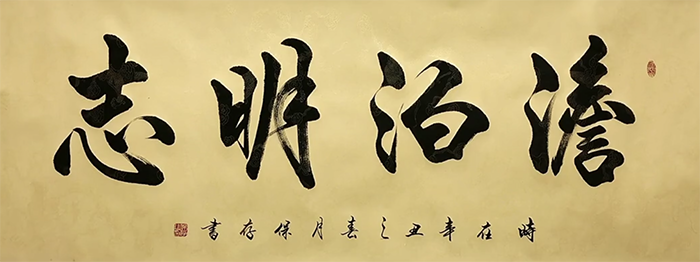 澹泊明志
時在辛丑之春月保存書